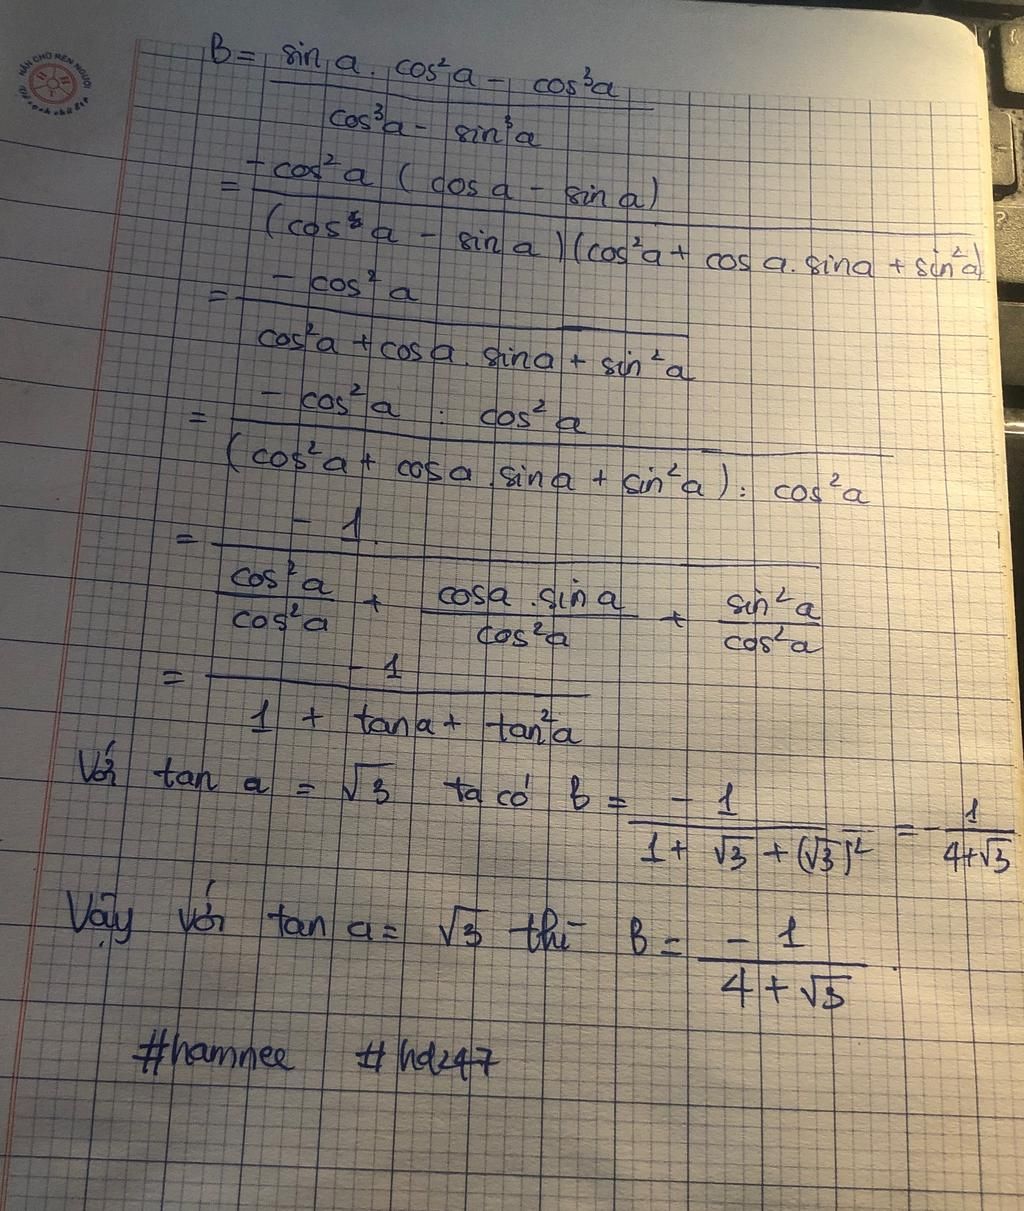 NÂN CHỮ RÈN NGƯỜI
B = sin a . cos²a - cos³a
cos³a - sin³a
= -cos²a (cos a - sin a)
(cos a - sin a)(cos²a + cos a . sin a + sin²a)
= - cos²a
cos²a + cos a . sin a + sin²a
= - cos²a : cos²a
(cos²a + cos a . sin a + sin²a) : cos²a
= - 1
cos²a / cos²a + cos a . sin a / cos²a + sin²a / cos²a
= - 1
1 + tan a + tan²a
Với tan a = √3 ta có B = - 1 / 1 + √3 + (√3)² = - 1 / 4+√3
Vậy với tan a = √3 thì B = - 1 / 4 + √3
#hamnee #hd247